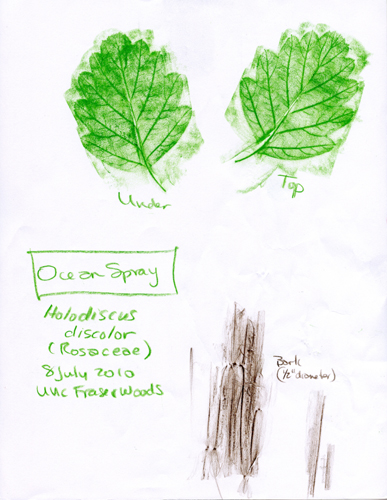 Under
Top
Ocean Spray
Holodiscus
discolor
(Rosaceae)
8 July 2010
UNC Fraser Woods
Bark
(1/2" diameter)